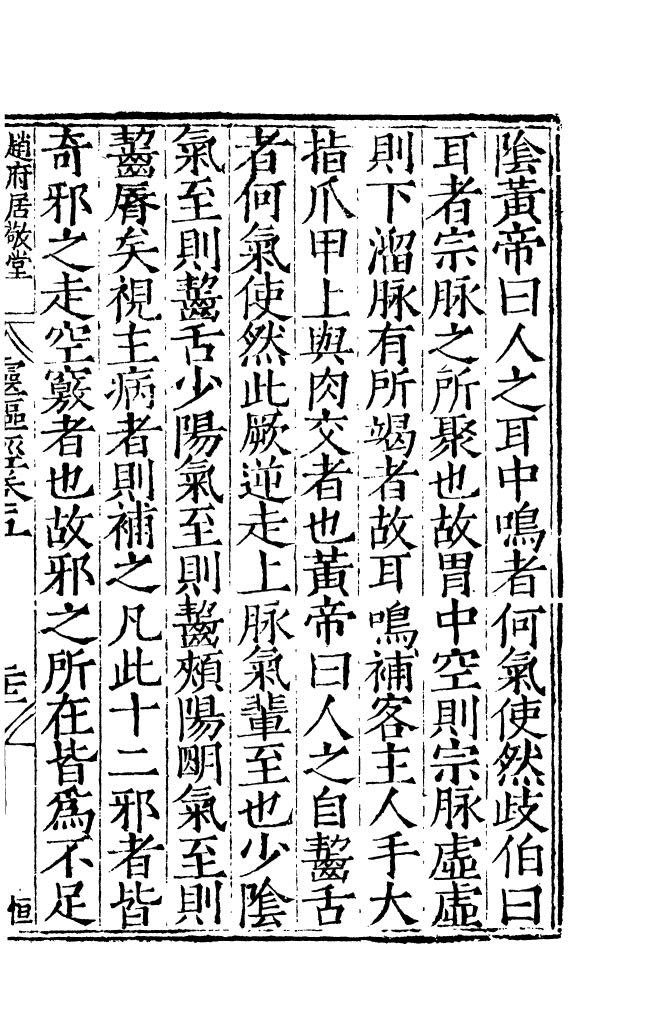 陰黃帝曰人之耳中鳴者何氣使然歧伯曰
耳者宗脉之所聚也故胃中空則宗脉虛虛
則下溜脉有所竭者故耳鳴補客主人手大
指爪甲上與肉交者也黃帝曰人之自齧舌
者何氣使然此厥逆走上脉氣輩至也少陰
氣至則齧舌少陽氣至則齧頰陽明氣至則
齧脣矣視主病者則補之凡此十二邪者皆
奇邪之走空竅者也故邪之所在皆爲不足
趙府居敬堂
靈樞經卷五
恒